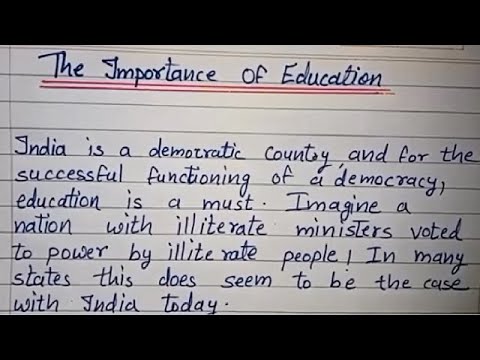 The Importance Of Education
India is a democratic country, and for the
successful functioning of a democracy,
education is a must. Imagine a
nation with illiterate ministers voted
to power by illiterate people! In many
states this does seem to be the case
with India today.